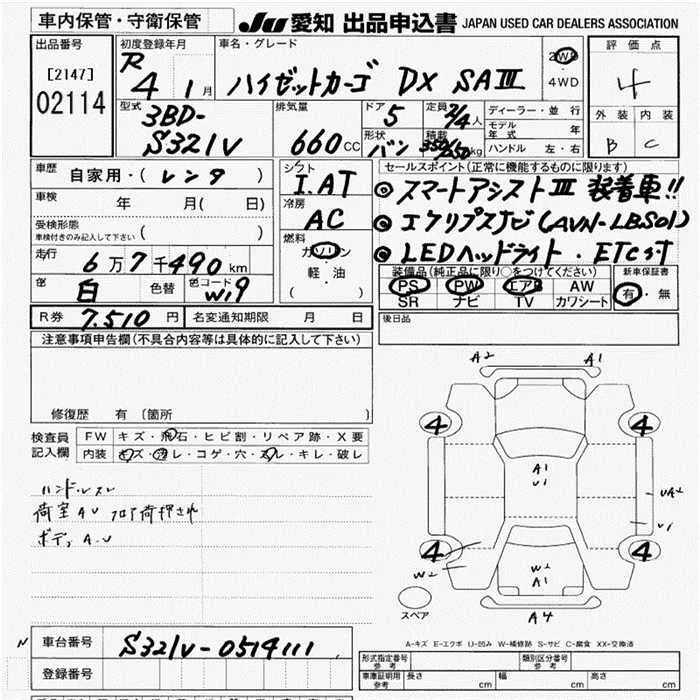 車内保管・守衛保管 JU 愛知 出品申込書 JAPAN USED CAR DEALERS ASSOCIATION
出品番号 初度登録年月 車名・グレード 2WD 評価点
[2147] R 4 1月 ハイゼットカーゴ DX SAⅢ 4WD 4
02114 型式 排気量 ドア 5 定員 2/4人 ディーラー・並行 外装 内装
3BD- モデル年式 年
S321V 660cc 形状 バン 積載 350/250kg ハンドル 左・右 B C
車歴 自家用・(レンタ) シフト I.AT セールスポイント(正常に機能するものに限ります)
車検 年 月( 日) 冷房 AC ◎スマートアシストⅢ 装着車!!
受検形態 ( ) ◎エクリプスナビ(AVN-LBS01)
車検付きのみ記入して下さい 燃料
走行 6万7千490km ガソリン ◎LEDヘッドライト・ETC付
色 白 色替 色コード W19 軽・油 装備品(純正品に限り○をつけてください) 新車保証書
( ) PS PW エアB AW 有・無
SR ナビ TV カワシート
R券 7.510円 名変通知期限 月 日 後日品
注意事項申告欄(不具合内容等は具体的に記入して下さい)
A2 A1
修復歴 有 〔箇所 〕
4 4
検査員 FW キズ・飛石・ヒビ割・リペア跡・X要
記入欄 内装 キズ・汚レ・コゲ・穴・スレ・キレ・破レ
A1
U1
ハンドルスレ UA2
荷室AU フロア荷押され U1
ボディA・U
4 4
W2 W2
A1
スペア A4
A-キズ E-エクボ U-凹み W-補修跡 S-サビ C-腐食 XX-交換済
N 車台番号 S321V-0514111
登録番号 形式指定番号 参考 類別区分番号 参考
車庫証明用 参考 長さ cm 幅 cm 高さ cm